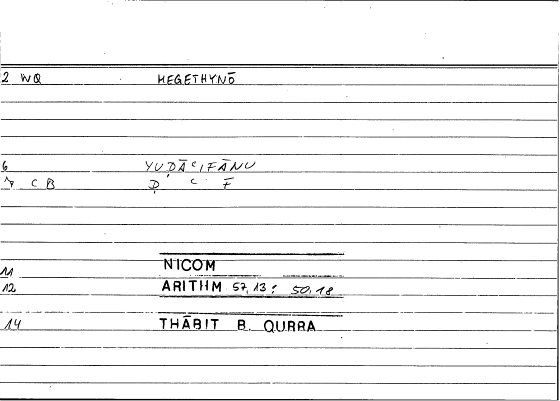 2 WQ MEGETHYNŌ
6 YUḌĀʿIFĀNU
7 C B Ḍ C F
11 NICOM
12 ARITHM 57,13; 50,18
14 THĀBIT B. QURRA